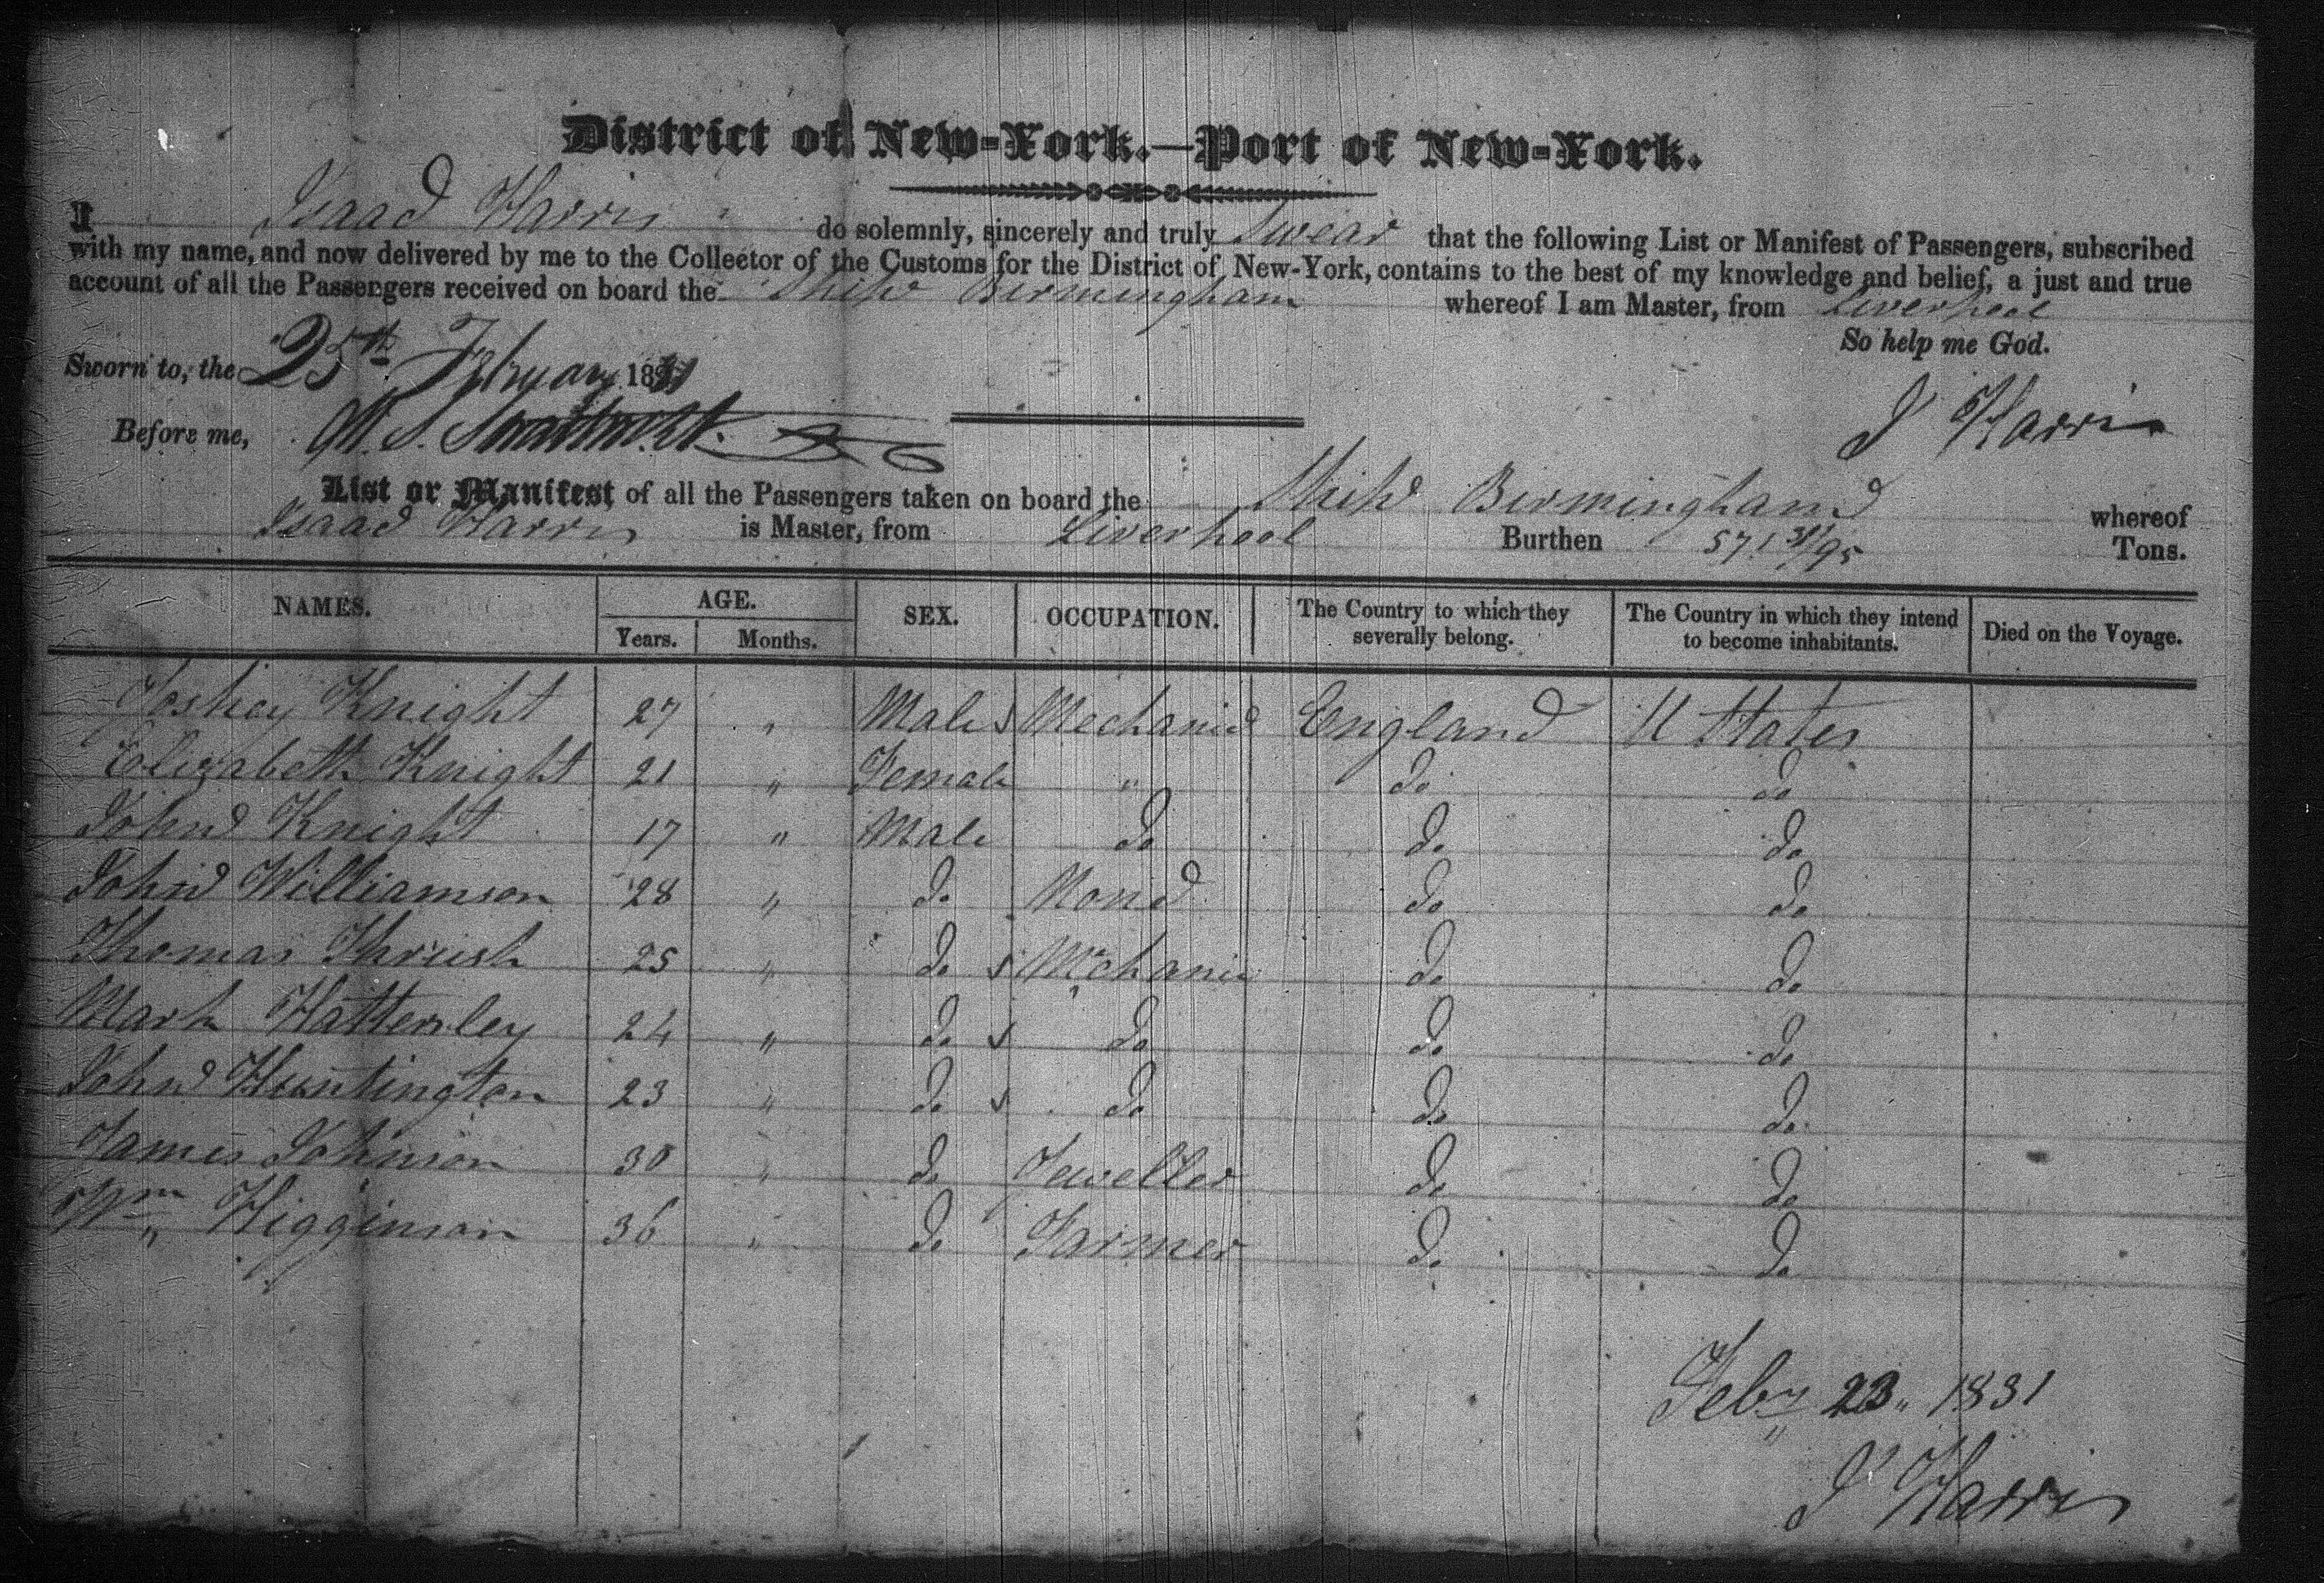 District of New-York.—Port of New-York.
I Isaac Harris do solemnly, sincerely and truly Swear that the following List or Manifest of Passengers, subscribed
with my name, and now delivered by me to the Collector of the Customs for the District of New-York, contains to the best of my knowledge and belief, a just and true
account of all the Passengers received on board the Ship Birmingham whereof I am Master, from Liverpool
So help me God.
Sworn to, the 25th February 1831
Before me,
I Harris
List or Manifest of all the Passengers taken on board the Ship Birmingham whereof
Isaac Harris is Master, from Liverpool Burthen 571 31/95 Tons.
NAMES. AGE. SEX. OCCUPATION. The Country to which they severally belong. The Country in which they intend to become inhabitants. Died on the Voyage.
Years. Months.
Knight 27 " Male s Mechanic England U States
Elizabeth Knight 21 " Female " do do
John Knight 17 " Male do do do
John Williamson 28 " do None do do
Thomas Thrush 25 " do s Mechanic do do
Mark Hattersley 24 " do s do do do
John Huntington 23 " do s do do do
James Johnson 30 " do Jeweller do do
Wm Higginson 36 " do Farmer do do
Feby 23 " 1831
I Harris